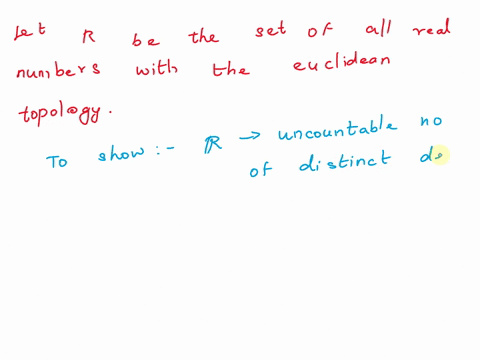 Let R be the set of all real
numbers with the euclidean
topology.
To show :- ℝ → uncountable no
of distinct de